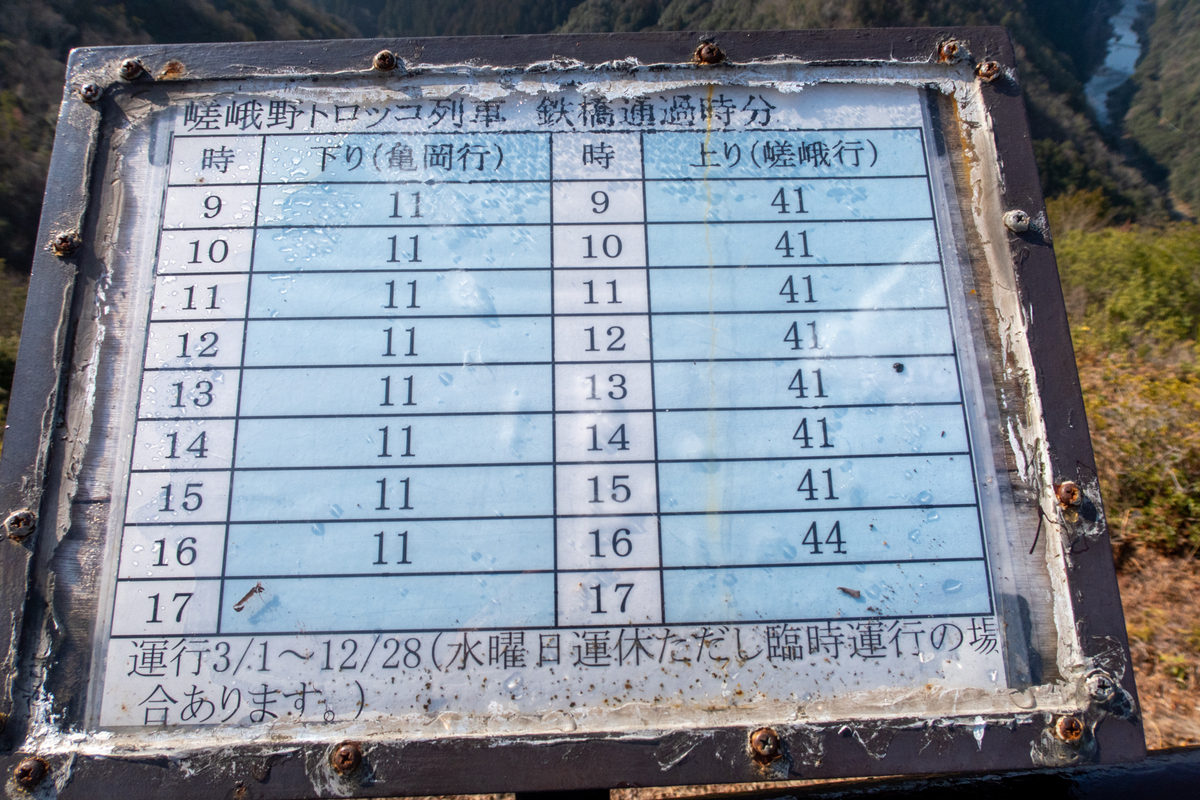 嵯峨野トロッコ列車 鉄橋通過時分
時 下り(亀岡行) 時 上り(嵯峨行)
9 11 9 41
10 11 10 41
11 11 11 41
12 11 12 41
13 11 13 41
14 11 14 41
15 11 15 41
16 11 16 44
17 17
運行3/1～12/28(水曜日運休ただし臨時運行の場
合あります。)